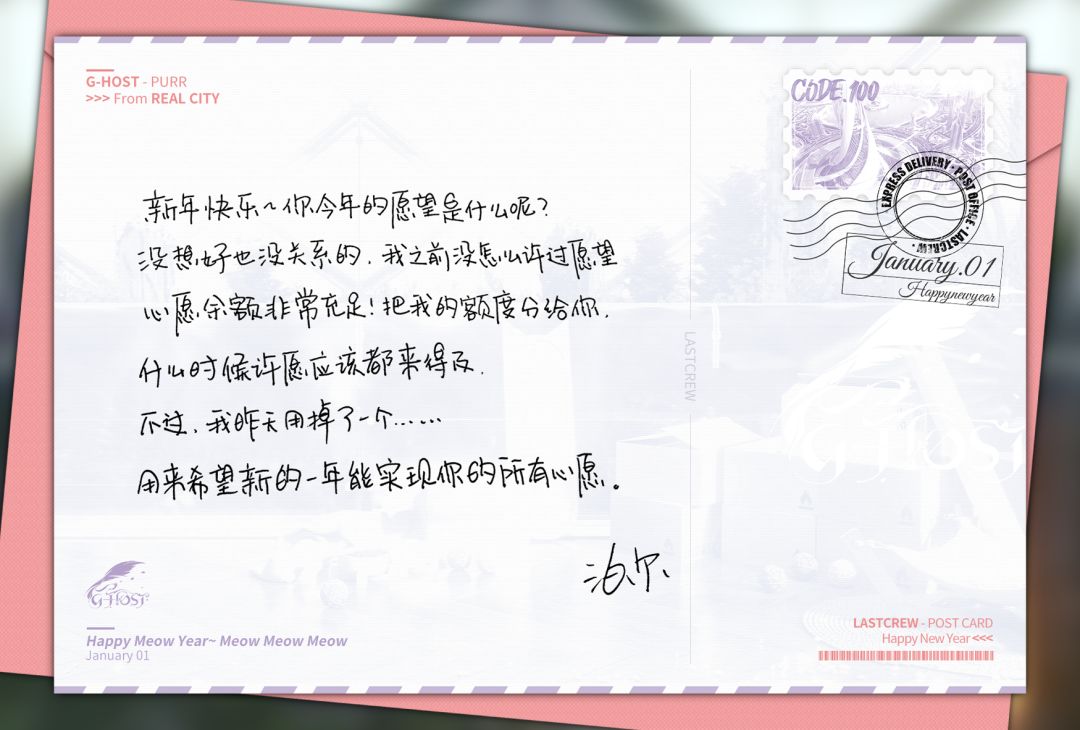 G-HOST - PURR
>>> From REAL CITY
CODE.100
EXPRESS DELIVERY · POST OFFICE · LASTCREW
January.01
Happynewyear
新年快乐~你今年的愿望是什么呢？
没想好也没关系的，我之前没怎么许过愿望
心愿余额非常充足！把我的额度分给你，
什么时候许愿应该都来得及.
不过，我昨天用掉了一个……
用来希望新的一年能实现你的所有心愿。
泊尔、
LASTCREW
G-HOST
G-HOST
Happy Meow Year~ Meow Meow Meow
January 01
LASTCREW - POST CARD
Happy New Year <<<